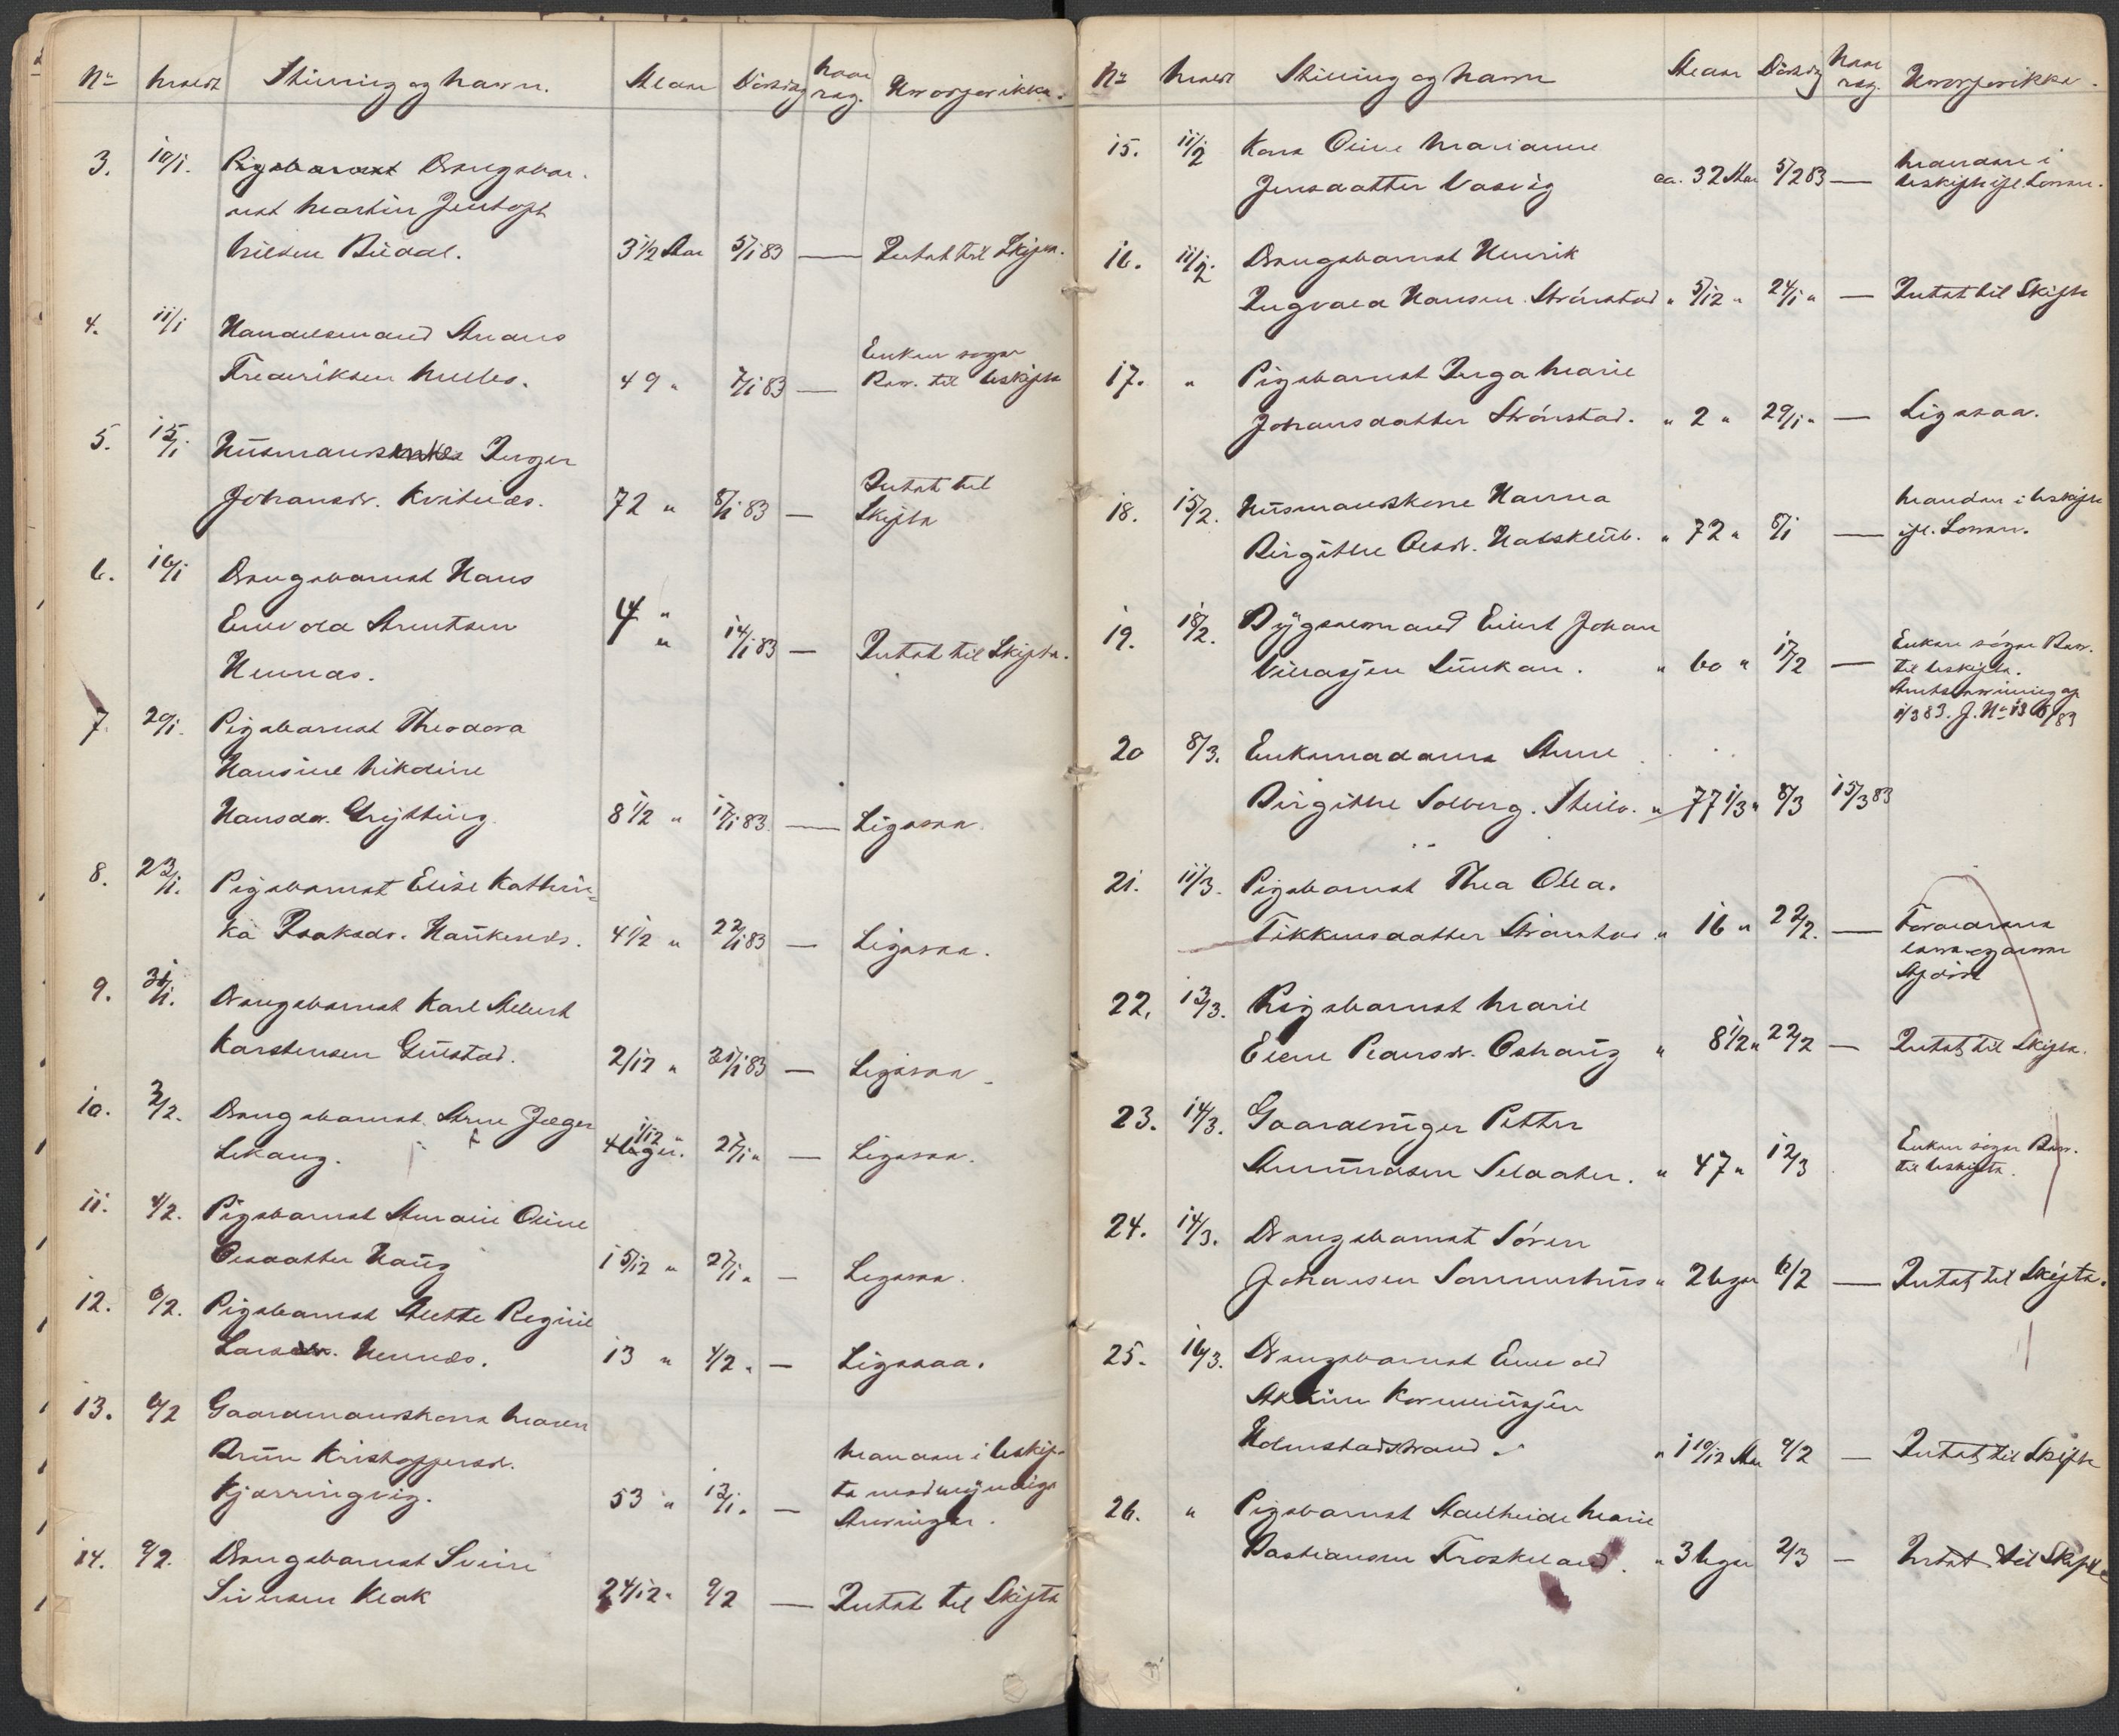 No Meldt Stilling og Navn. Alder Dödsdag Naar reg. Hvorfor ikke.
3. 10/1. Pigebarnet Drengebar-
net Martin Jentoft
Nilsen Budal. 3 1/2 Aar 5/1 83 — Intet til Skifte.
4. 11/1 Handelsmand Andreas
Fredriksen Melbo. 49 " 7/1 83 — Enken søger Bev. til Uskifte
5. 15/1 Husmands Inger
Johansdr. Kvitnes. 72 " 8/1 83 — Intet til Skifte
6. 16/1 Drengebarnet Hans
Enevold Arentsen
Hennes. 4 " 14/1 83 — Intet til Skifte.
7. 20/1. Pigebarnet Theodora
Hansine Nikoline
Hansdr. Grytting. 8 1/2 " 17/1 83 — Ligesaa.
8. 23/1. Pigebarnet Elise Kathrin-
ka Isaksdr. Haukenes. 4 1/2 " 22/1 83 — Ligesaa.
9. 31/1. Drengebarnet Karl Albert
Karstensen Guvstad. 2/12 " 31/1 83 — Ligesaa.
10. 3/2. Drengebarnet Arne Jæger
Lekang. 1/12 " 27/1 " — Ligesaa.
11. 4/2. Pigebarnet Amalie Oline
Olsdatter Haug 1 5/12 " 27/1 " — Ligesaa.
12. 6/2. Pigebarnet Mette Regine
Larsdr. Hennes. 13 " 4/2 " — Ligesaa.
13. 6/2 Gaardmandskone Maren
Brun Kristoffersdr.
Kjerringvig. 53 " 13/1 " — Manden i Uskif-
te med myndige
Arvinger.
14. 9/2. Drengebarnet Svein
Sivertsen Klak 2 4/12 " 9/2 — Intet til Skifte
No Meldt Stilling og Navn Alder Dödsdag Naar reg. Hvorfor ikke.
15. 11/2 Kone Oline Marianne
Jensdatter Vasvig ca. 32 Aar 5/2 83 — Manden i
Uskifte ifl Loven.
16. 11/2. Drengebarnet Henrik
Ingvald Hansen Strönstad " 5/12 " 24/1 " — Intet til Skifte
17. " Pigebarnet Inga Marie
Johansdatter Strönstad. " 2 " 29/1 " — Ligesaa.
18. 15/2. Husmandskone Hanna
Birgitte Olsdr. " 72 " 8/1 — Manden i Uskifte
ifl. Loven.
19. 18/2. Bygselmand Eilert Johan
Villasjen Lunkan. " 60 " 17/2 — Enken søger Bev.
til Uskifte.
1/3 83. J. No 136/83
20 8/3. Enkemadame Anne
Birgitte Solberg. Steilo. " 77 1/3 " 8/3 15/3 83
21. 11/3. Pigebarnet Thea Olea.
Tikkensdatter Strönstad " 16 " 22/2. — Forældrene
22. 13/3. Pigebarnet Marie
Elene Pedersdr. Oshaug " 8 1/2 " 22/2 — Intet til Skifte.
23. 14/3. Gaardbruger Petter
Amundsen Selaater. " 47 " 12/3 Enken søger Bev.
til Uskifte.
24. 14/3. Drengebarnet Sören
Johansen Sommerhus " 2 Uger 6/2 — Intet til Skifte.
25. 16/3. Drengebarnet Enevold
Holmstadstrand. " 1 10/12 Aar 9/2 — Intet til Skifte
26. " Pigebarnet Adelheide Marie
Bastiansen Froskeland. " 3 Uger 2/3 — Intet til Skifte